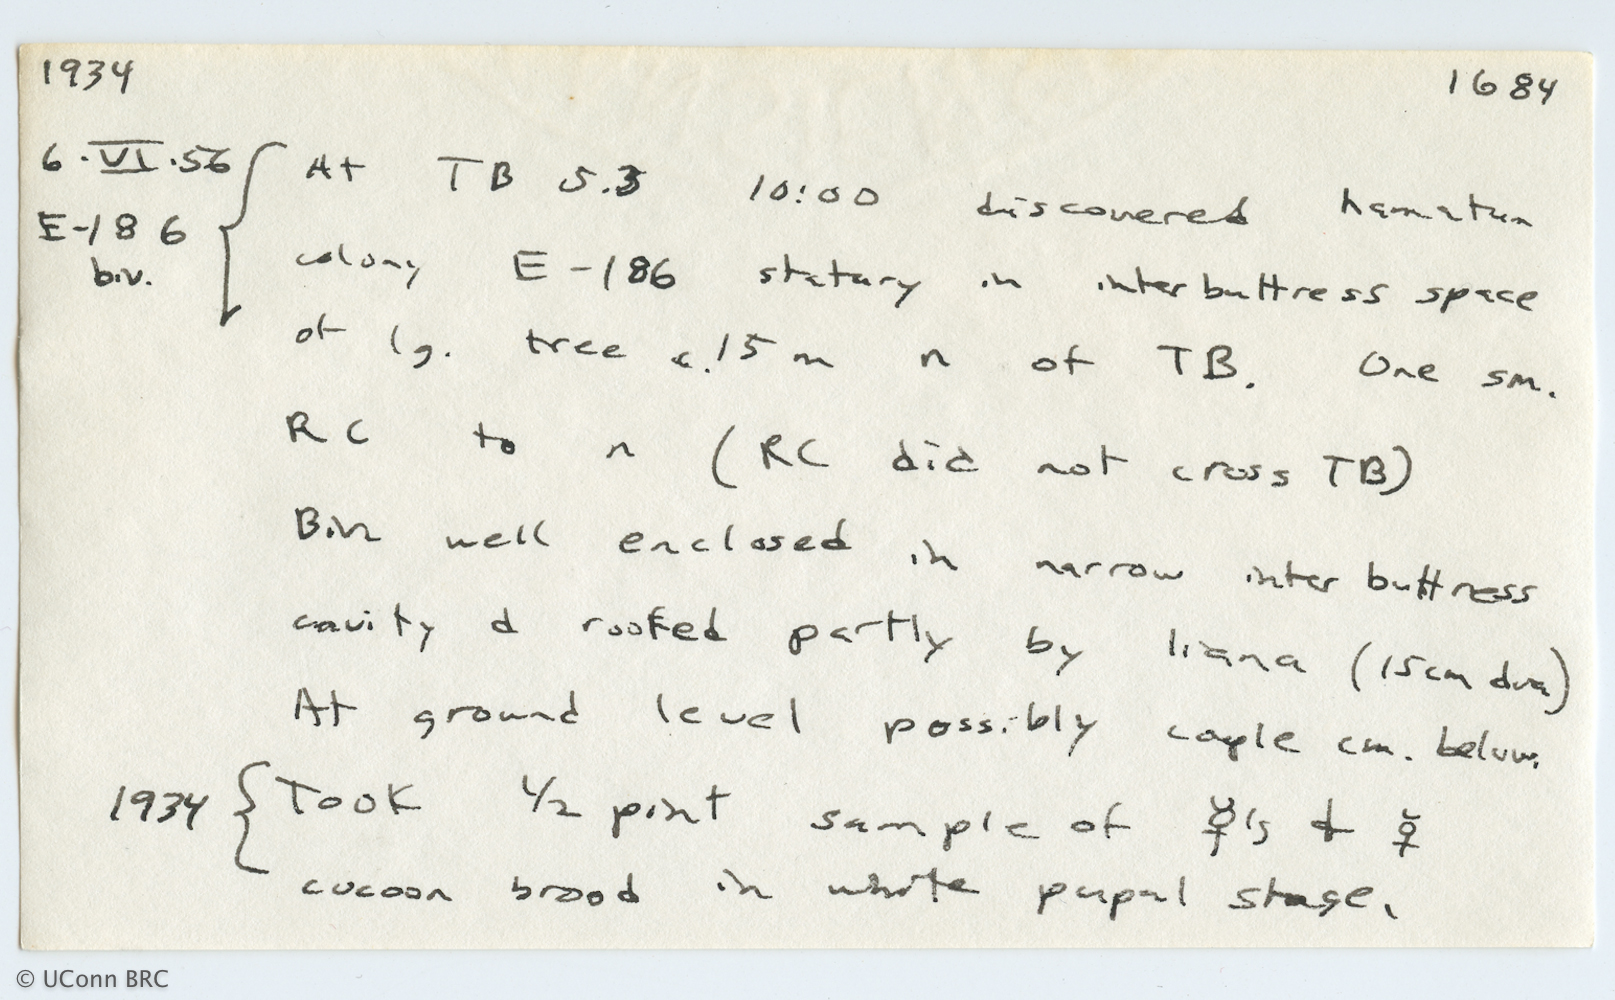 1934 1684
6·VI·56 At TB 5.3 10:00 discovered hamatum
E-186 colony E-186 statary in interbuttress space
biv. of lg. tree c. 15 m n of TB. One sm.
RC to n (RC did not cross TB)
Biv well enclosed in narrow inter buttress
cavity & roofed partly by liana (15cm dia)
At ground level possibly couple cm. below.
1934 Took 1/2 pint sample of ☿'s & ☿
cocoon brood in white pupal stage.
© UConn BRC